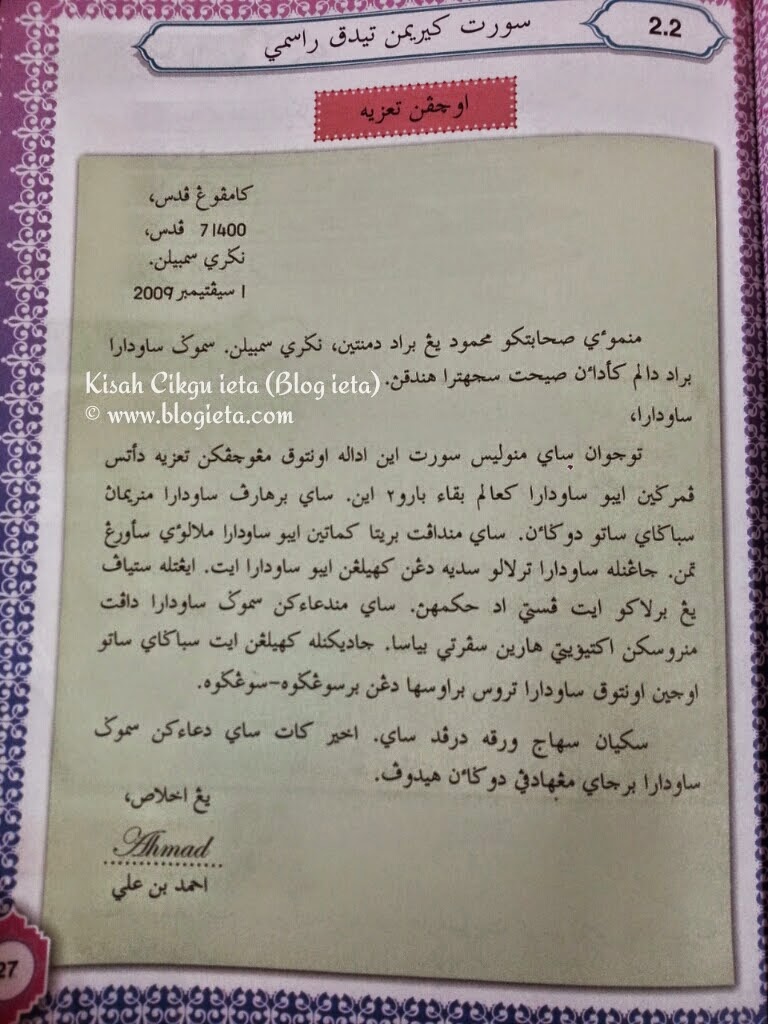 2.2
سورت كيريمن تيدق راسمي
اوچڤن تعزيه
كامڤوڠ ڤدس،
71400 ڤدس،
نݢري سمبيلن.
1 سيڤتيمبر 2009
منموءي صحابتكو محمود يڠ براد دمنتين، نݢري سمبيلن. سموݢ ساودارا
براد دالم كأداٴن صيحت سجهترا هندقڽ.
Kisah Cikgu ieta (Blog ieta)
© www.blogieta.com
ساودارا،
توجوان ساي منوليس سورت اين اداله اونتوق مڠوچڤكن تعزيه دأتس
ڤمرݢين ايبو ساودارا كعالم بقاء بارو٢ اين. ساي برهارڤ ساودارا منريماڽ
سباݢاي ساتو دوݢاٴن. ساي منداڤت بريتا كماتين ايبو ساودارا ملالوءي سأورڠ
تمن. جاڠنله ساودارا ترلالو سديه دڠن كهيلڠن ايبو ساودارا ايت. ايڠتله ستياڤ
يڠ برلاكو ايت ڤستي اد حكمهڽ. ساي مندعاءكن سموݢ ساودارا داڤت
منروسكن اكتيۏيتي هارين سڤرتي بياسا. جاديكنله كهيلڠن ايت سباݢاي ساتو
اوجين اونتوق ساودارا تروس براوسها دڠن برسوڠݢوه-سوڠݢوه.
سكيان سهاج ورقه درڤد ساي. اخير كات ساي دعاءكن سموݢ
ساودارا برجاي مڠهادڤي دوݢاٴن هيدوڤ.
يڠ اخلاص،
Ahmad
احمد بن علي
27